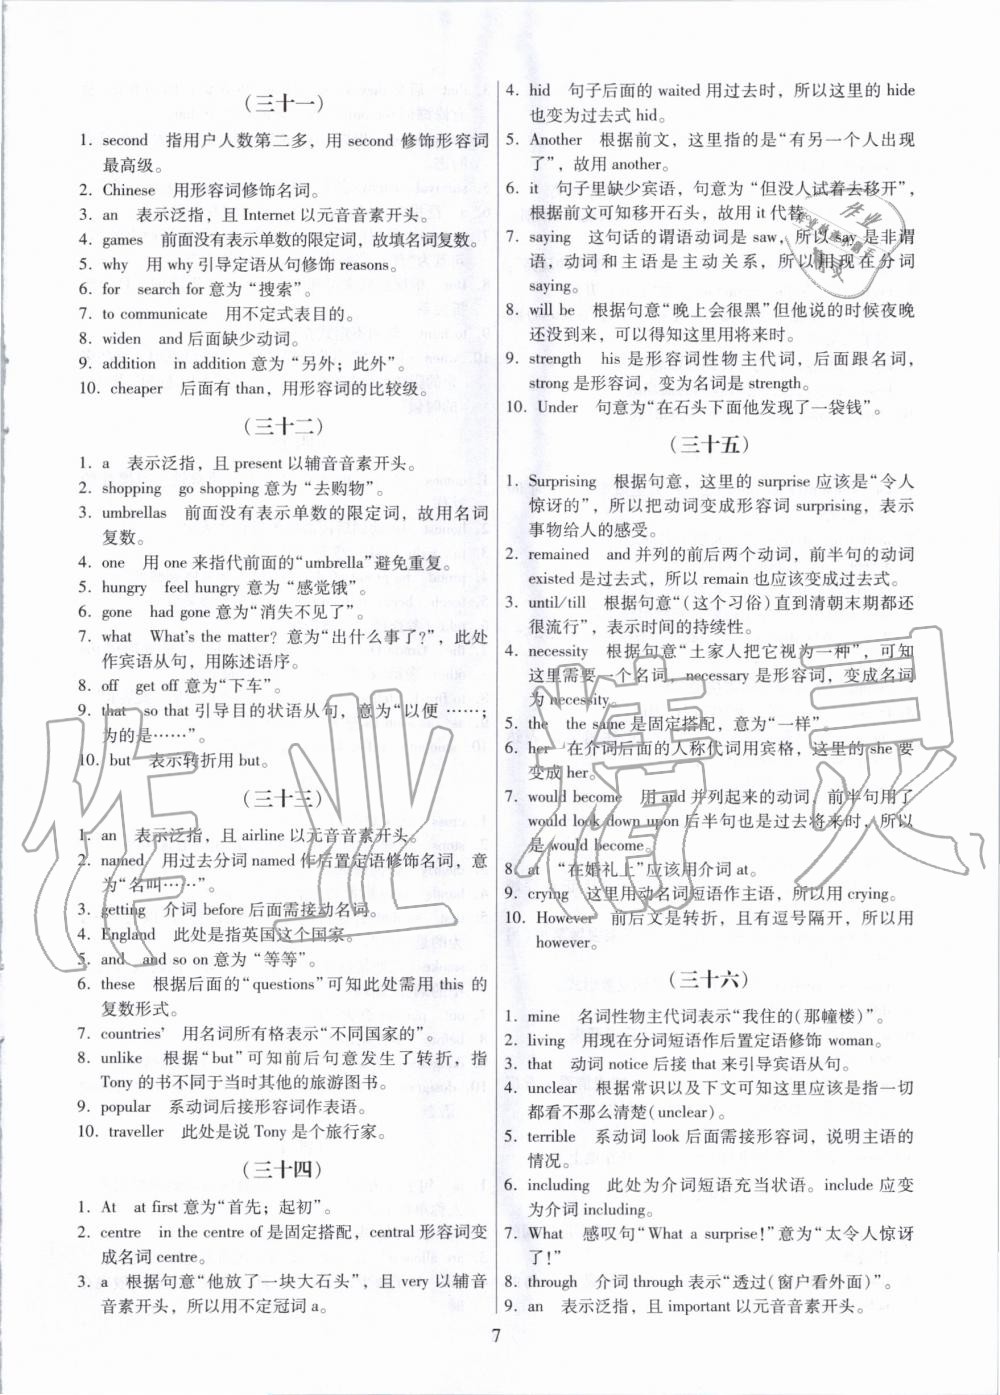 (三十一)
1. second 指用户人数第二多，用 second 修饰形容词
最高级。
2. Chinese 用形容词修饰名词。
3. an 表示泛指，且 Internet 以元音音素开头。
4. games 前面没有表示单数的限定词，故填名词复数。
5. why 用 why 引导定语从句修饰 reasons。
6. for search for 意为“搜索”。
7. to communicate 用不定式表目的。
8. widen and 后面缺少动词。
9. addition in addition 意为“另外；此外”。
10. cheaper 后面有 than，用形容词的比较级。
(三十二)
1. a 表示泛指，且 present 以辅音音素开头。
2. shopping go shopping 意为“去购物”。
3. umbrellas 前面没有表示单数的限定词，故用名词
复数。
4. one 用 one 来指代前面的“umbrella”避免重复。
5. hungry feel hungry 意为“感觉饿”。
6. gone had gone 意为“消失不见了”。
7. what What's the matter? 意为“出什么事了?”，此处
作宾语从句，用陈述语序。
8. off get off 意为“下车”。
9. that so that 引导目的状语从句，意为“以便……；
为的是……”。
10. but 表示转折用 but。
(三十三)
1. an 表示泛指，且 airline 以元音音素开头。
2. named 用过去分词 named 作后置定语修饰名词，意
为“名叫……”。
3. getting 介词 before 后面需接动名词。
4. England 此处是指英国这个国家。
5. and and so on 意为“等等”。
6. these 根据后面的“questions”可知此处需用 this 的
复数形式。
7. countries' 用名词所有格表示“不同国家的”。
8. unlike 根据“but”可知前后句意发生了转折，指
Tony 的书不同于当时其他的旅游图书。
9. popular 系动词后接形容词作表语。
10. traveller 此处是说 Tony 是个旅行家。
(三十四)
1. At at first 意为“首先；起初”。
2. centre in the centre of 是固定搭配，central 形容词变
成名词 centre。
3. a 根据句意“他放了一块大石头”，且 very 以辅音
音素开头，所以用不定冠词 a。
4. hid 句子后面的 waited 用过去时，所以这里的 hide
也变为过去式 hid。
5. Another 根据前文，这里指的是“有另一个人出现
了”，故用 another。
6. it 句子里缺少宾语，句意为“但没人试着去移开”，
根据前文可知移开石头，故用 it 代替。
7. saying 这句话的谓语动词是 saw，所以 say 是非谓
语，动词和主语是主动关系，所以用现在分词
saying。
8. will be 根据句意“晚上会很黑”但他说的时候夜晚
还没到来，可以得知这里用将来时。
9. strength his 是形容词性物主代词，后面跟名词，
strong 是形容词，变为名词是 strength。
10. Under 句意为“在石头下面他发现了一袋钱”。
(三十五)
1. Surprising 根据句意，这里的 surprise 应该是“令人
惊讶的”，所以把动词变成形容词 surprising，表示
事物给人的感受。
2. remained and 并列的前后两个动词，前半句的动词
existed 是过去式，所以 remain 也应该变成过去式。
3. until/till 根据句意“（这个习俗）直到清朝末期都还
很流行”，表示时间的持续性。
4. necessity 根据句意“土家人把它视为一种”，可知
这里需要一个名词，necessary 是形容词，变成名词
为 necessity。
5. the the same 是固定搭配，意为“一样”。
6. her 在介词后面的人称代词用宾格，这里的 she 要
变成 her。
7. would become 用 and 并列起来的动词，前半句用了
would look down upon 后半句也是过去将来时，所以
是 would become。
8. at “在婚礼上”应该用介词 at。
9. crying 这里用动名词短语作主语，所以用 crying。
10. However 前后文是转折，且有逗号隔开，所以用
however。
(三十六)
1. mine 名词性物主代词表示“我住的（那幢楼）”。
2. living 用现在分词短语作后置定语修饰 woman。
3. that 动词 notice 后接 that 来引导宾语从句。
4. unclear 根据常识以及下文可知这里应该是指一切
都看不那么清楚（unclear）。
5. terrible 系动词 look 后面需接形容词，说明主语的
情况。
6. including 此处为介词短语充当状语。include 应变
为介词 including。
7. What 感叹句“What a surprise!”意为“太令人惊讶
了!”
8. through 介词 through 表示“透过（窗户看外面）”。
9. an 表示泛指，且 important 以元音音素开头。
7
作业精灵
作业
精灵